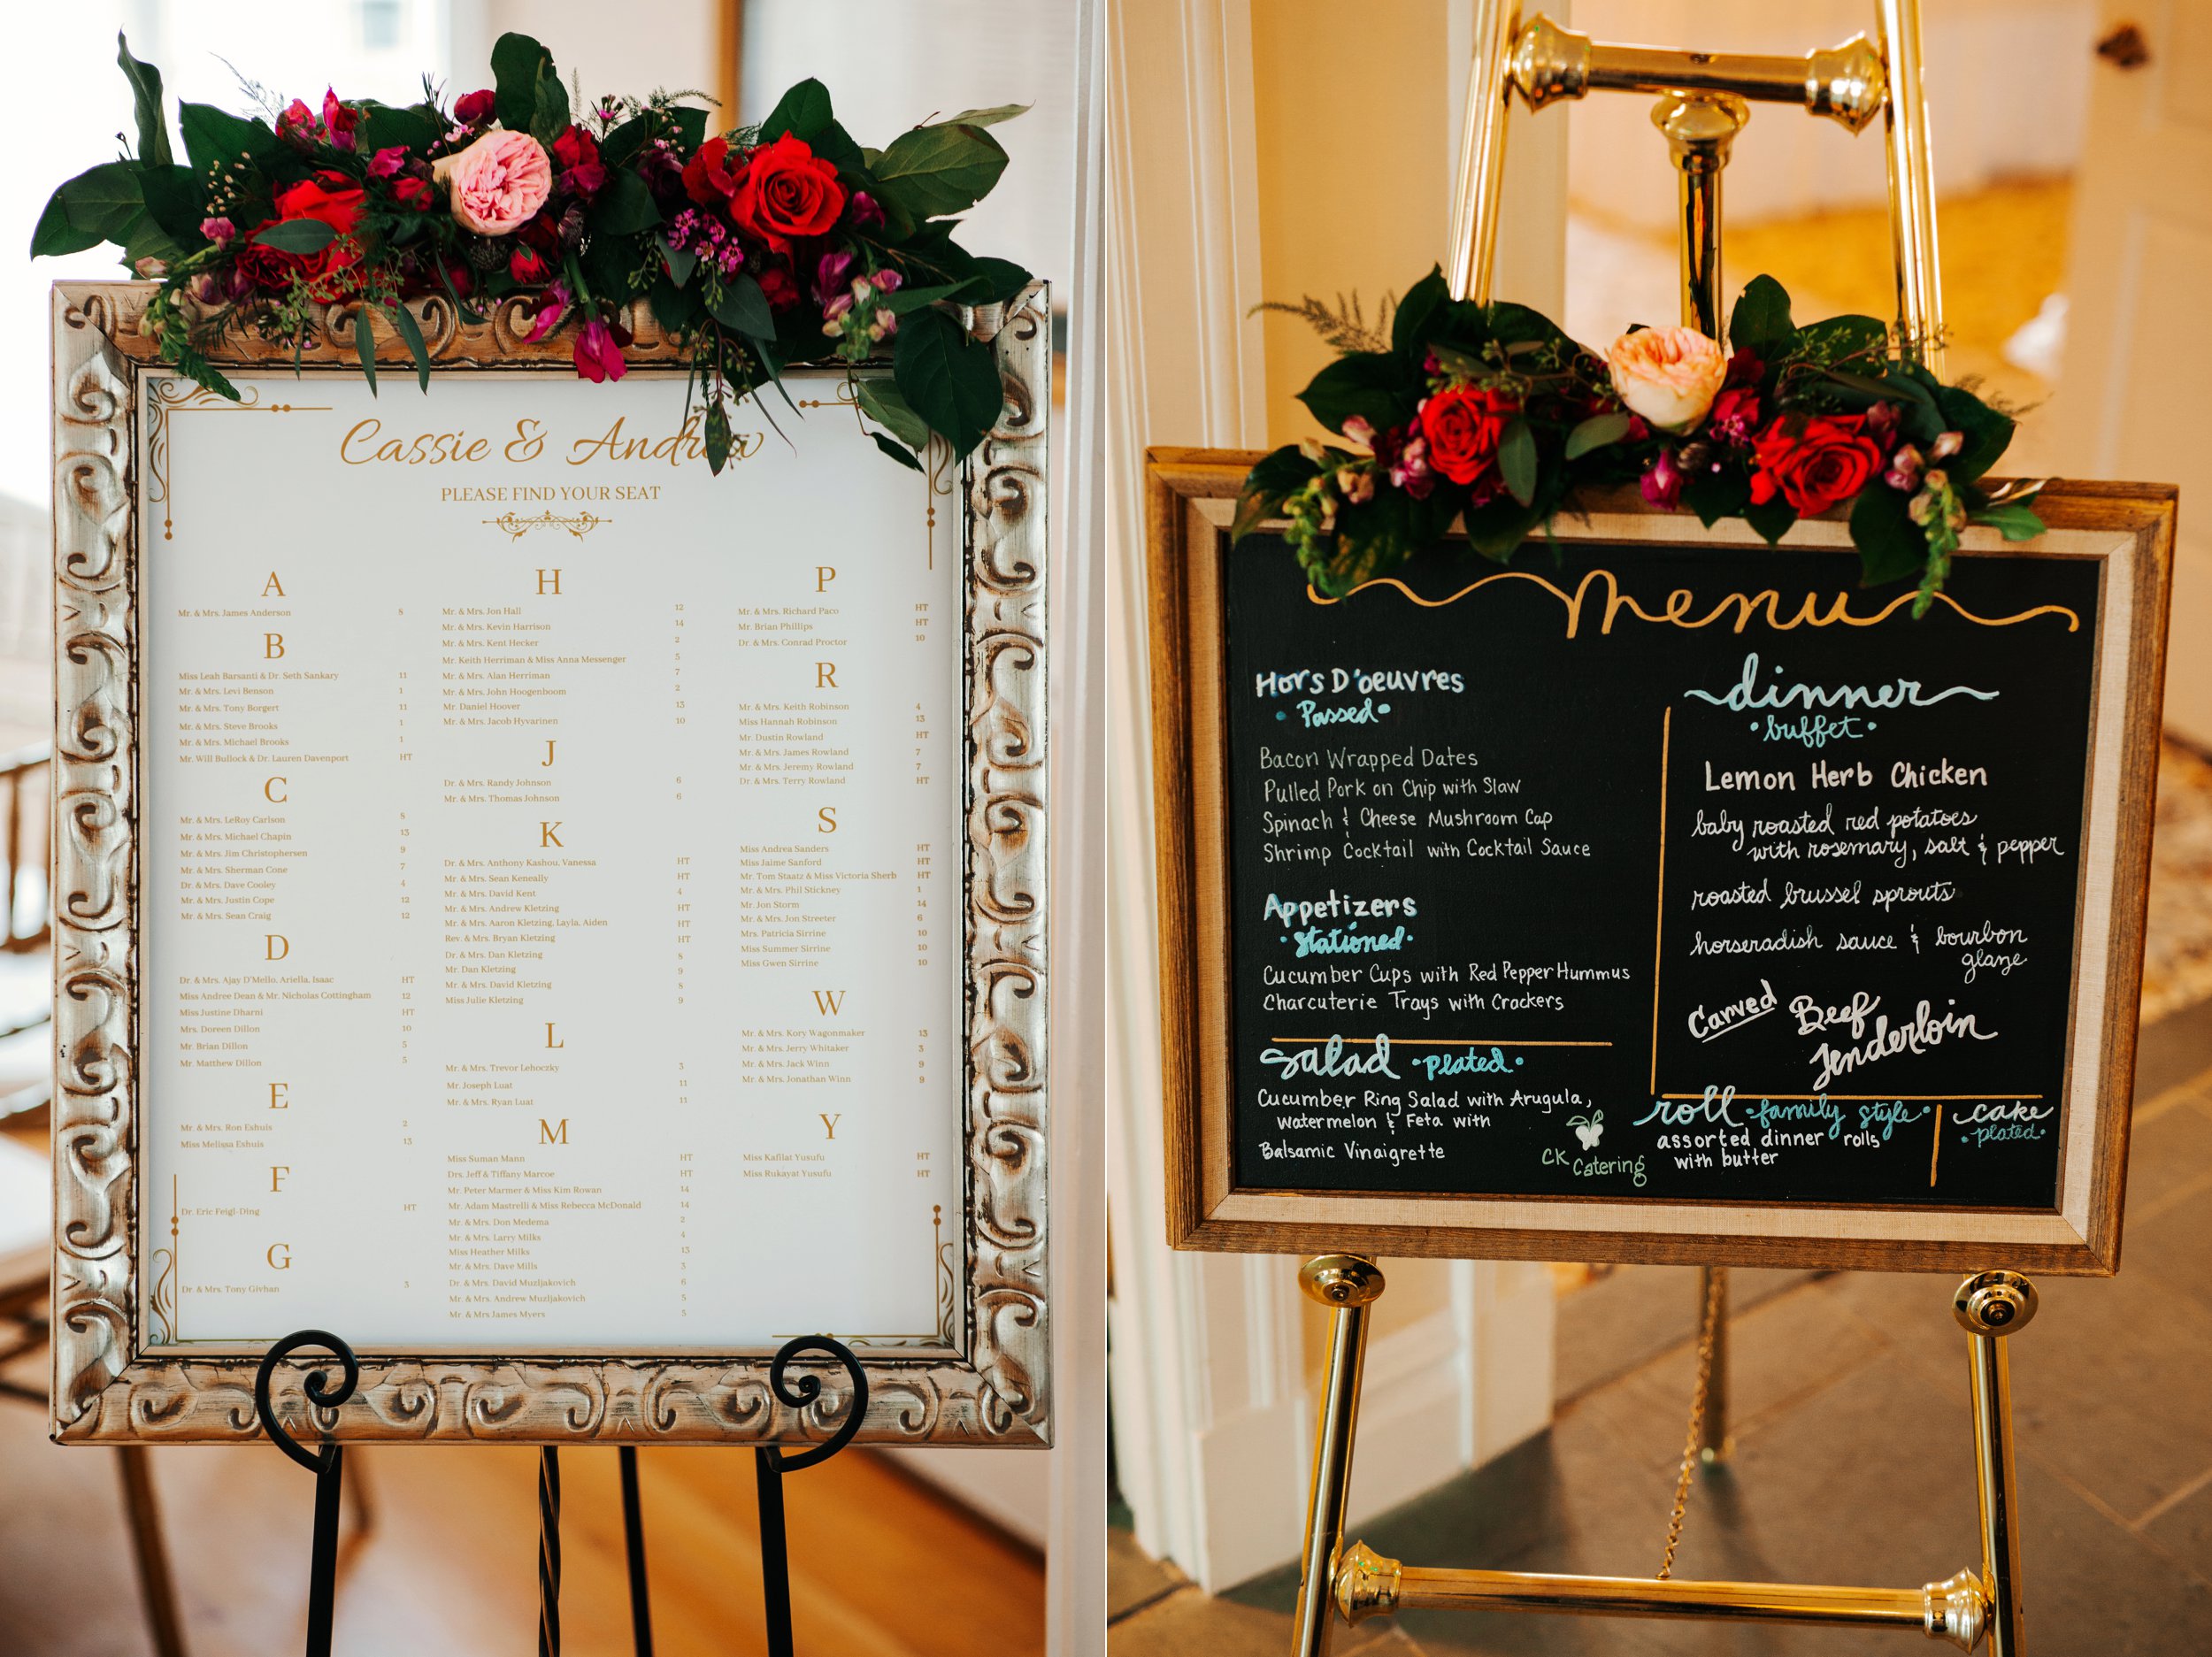 Cassie & Andrew
PLEASE FIND YOUR SEAT
A
Mr. & Mrs. James Anderson 8
B
Miss Leah Barsanti & Dr. Seth Sankary 11
Mr. & Mrs. Levi Benson 1
Mr. & Mrs. Tony Borgert 11
Mr. & Mrs. Steve Brooks 1
Mr. & Mrs. Michael Brooks 1
Mr. Will Bullock & Dr. Lauren Davenport HT
C
Mr. & Mrs. LeRoy Carlson 8
Mr. & Mrs. Michael Chapin 13
Mr. & Mrs. Jim Christophersen 9
Mr. & Mrs. Sherman Cone 7
Dr. & Mrs. Dave Cooley 4
Mr. & Mrs. Justin Cope 12
Mr. & Mrs. Sean Craig 12
D
Dr. & Mrs. Ajay D'Mello, Ariella, Isaac HT
Miss Andree Dean & Mr. Nicholas Cottingham 12
Miss Justine Dharni HT
Mrs. Doreen Dillon 10
Mr. Brian Dillon 5
Mr. Matthew Dillon 5
E
Mr. & Mrs. Ron Eshuis 2
Miss Melissa Eshuis 13
F
Dr. Eric Feigl-Ding HT
G
Dr. & Mrs. Tony Givhan 3
H
Mr. & Mrs. Jon Hall 12
Mr. & Mrs. Kevin Harrison 14
Mr. & Mrs. Kent Hecker 2
Mr. Keith Herriman & Miss Anna Messenger 5
Mr. & Mrs. Alan Herriman 7
Mr. & Mrs. John Hoogenboom 2
Mr. Daniel Hoover 13
Mr. & Mrs. Jacob Hyvarinen 10
J
Dr. & Mrs. Randy Johnson 6
Mr. & Mrs. Thomas Johnson 6
K
Dr. & Mrs. Anthony Kashou, Vanessa HT
Mr. & Mrs. Sean Keneally HT
Mr. & Mrs. David Kent 4
Mr. & Mrs. Andrew Kletzing HT
Mr. & Mrs. Aaron Kletzing, Layla, Aiden HT
Rev. & Mrs. Bryan Kletzing HT
Dr. & Mrs. Dan Kletzing 8
Mr. Dan Kletzing 9
Mr. & Mrs. David Kletzing 8
Miss Julie Kletzing 9
L
Mr. & Mrs. Trevor Lehoczky 3
Mr. Joseph Luat 11
Mr. & Mrs. Ryan Luat 11
M
Miss Suman Mann HT
Drs. Jeff & Tiffany Marcoe HT
Mr. Peter Marmer & Miss Kim Rowan 14
Mr. Adam Mastrelli & Miss Rebecca McDonald 14
Mr. & Mrs. Don Medema 2
Mr. & Mrs. Larry Milks 4
Miss Heather Milks 13
Mr. & Mrs. Dave Mills 3
Dr. & Mrs. David Muzljakovich 6
Mr. & Mrs. Andrew Muzljakovich 5
Mr. & Mrs James Myers 5
P
Mr. & Mrs. Richard Paco HT
Mr. Brian Phillips HT
Dr. & Mrs. Conrad Proctor 10
R
Mr. & Mrs. Keith Robinson 4
Miss Hannah Robinson 13
Mr. Dustin Rowland HT
Mr. & Mrs. James Rowland 7
Mr. & Mrs. Jeremy Rowland 7
Dr. & Mrs. Terry Rowland HT
S
Miss Andrea Sanders HT
Miss Jaime Sanford HT
Mr. Tom Staatz & Miss Victoria Sherb HT
Mr. & Mrs. Phil Stickney 1
Mr. Jon Storm 14
Mr. & Mrs. Jon Streeter 6
Mrs. Patricia Sirrine 10
Miss Summer Sirrine 10
Miss Gwen Sirrine 10
W
Mr. & Mrs. Kory Wagonmaker 13
Mr. & Mrs. Jerry Whitaker 3
Mr. & Mrs. Jack Winn 9
Mr. & Mrs. Jonathan Winn 9
Y
Miss Kafilat Yusufu HT
Miss Rukayat Yusufu HT
menu
Hors D'oeuvres
• Passed •
Bacon Wrapped Dates
Pulled Pork on Chip with Slaw
Spinach & Cheese Mushroom Cap
Shrimp Cocktail with Cocktail Sauce
Appetizers
• Stationed •
Cucumber Cups with Red Pepper Hummus
Charcuterie Trays with Crackers
Salad • plated •
Cucumber Ring Salad with Arugula,
watermelon & Feta with
Balsamic Vinaigrette
CK Catering
dinner
• buffet •
Lemon Herb Chicken
baby roasted red potatoes
with rosemary, salt & pepper
roasted brussel sprouts
horseradish sauce & bourbon
glaze
Carved Beef
Tenderloin
roll • family style •
assorted dinner rolls
with butter
cake
• plated •